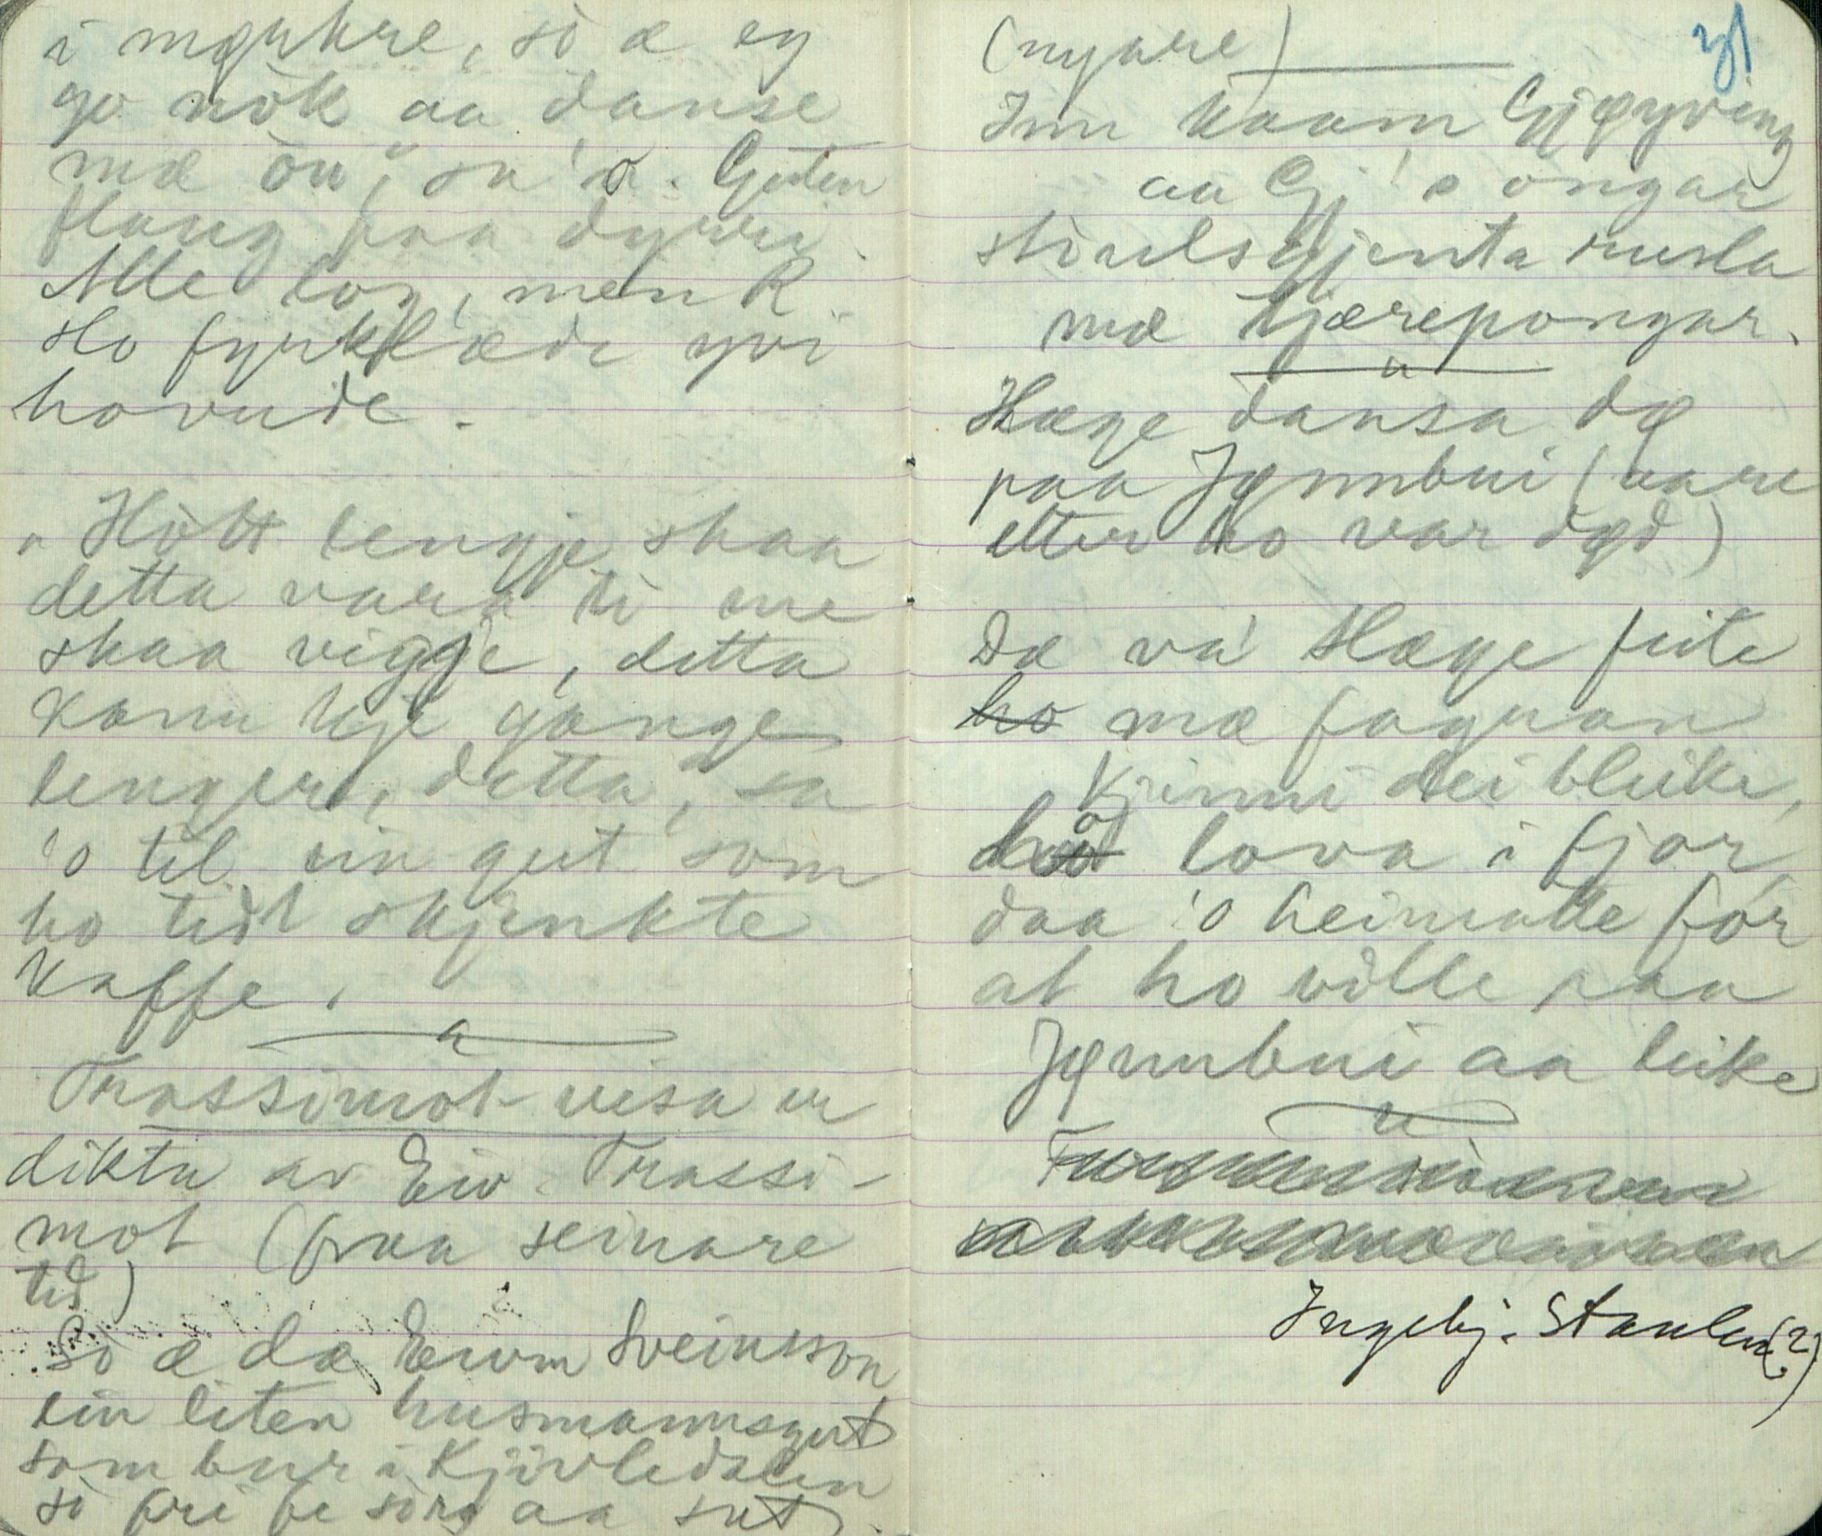 i mørkre, so æ eg
go nòk aa danse
mæ òn", sa 'a. Guten
flaug paa dyrri.
Alle log, men R
slo fyrklæde yvi
hovude.
"Hòtt lengje skaa
detta vara ti me
skaa viggje, detta
kann kje gange
lenger, detta", sa
'o til ein gut som
ho tidt skjenkte
kaffe.
Trassimot-visa er
dikta av Eiv. Trassi-
mot (fraa seinare
tid)
So æ dæ Eivin Sveinsson
ein liten husmannsgut
som bur i Kjivledalen
so fri fe sorg aa sut.
(nyare)
71
Inn kaam Gjøyving
aa Gj's ongar
stiulsgjenta rusla
mæ tjærepongar.
Hæge dansa dø
paa Jønnbui (aare
etter ho var død)
Dæ va' Hæge feite
mæ fagran
kjinni dei bleike,
lova i fjor,
daa 'o heimatte fór
at ho ville paa
Jønnbui aa leike
Ingebj. Staulen (?)